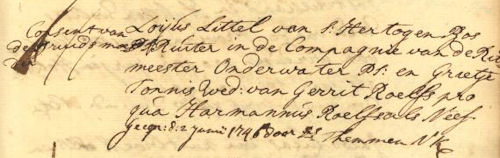 Consent van Loijus Littel van s: Hertogen Bos
de Ruiter in de Compagnie van de Rit
meester Onderwater Ps: en Grietje
Tonnis Wed: van Gerrit Roelfs pro
qua Harmannus Roelfs als Neef
gecop: d: 2 Junii 1746 door Ds Themmen